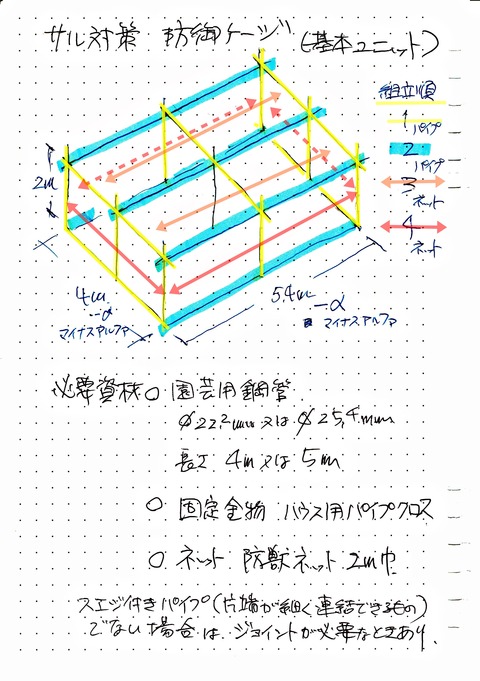 サル対策 防御ケージ (基本ユニット)
組立順
1
パイプ
2
パイプ
3
ネット
4
ネット
2m
4m
-α
マイナスアルファ
5.4m
-α
マイナスアルファ
必要資材 ○ 園芸用鋼管
φ22.2mm 又は φ25.4mm
長さ 4m又は5m
○ 固定金物 ハウス用パイプクロス
○ ネット 防獣ネット 2m巾
スエジ付きパイプ(片端が細く連結できるもの)
でない場合は、ジョイントが必要なときあり。